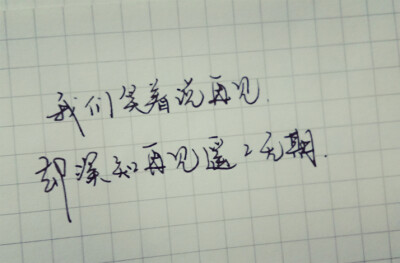 我们笑着说再见.
却深知再见遥々无期.